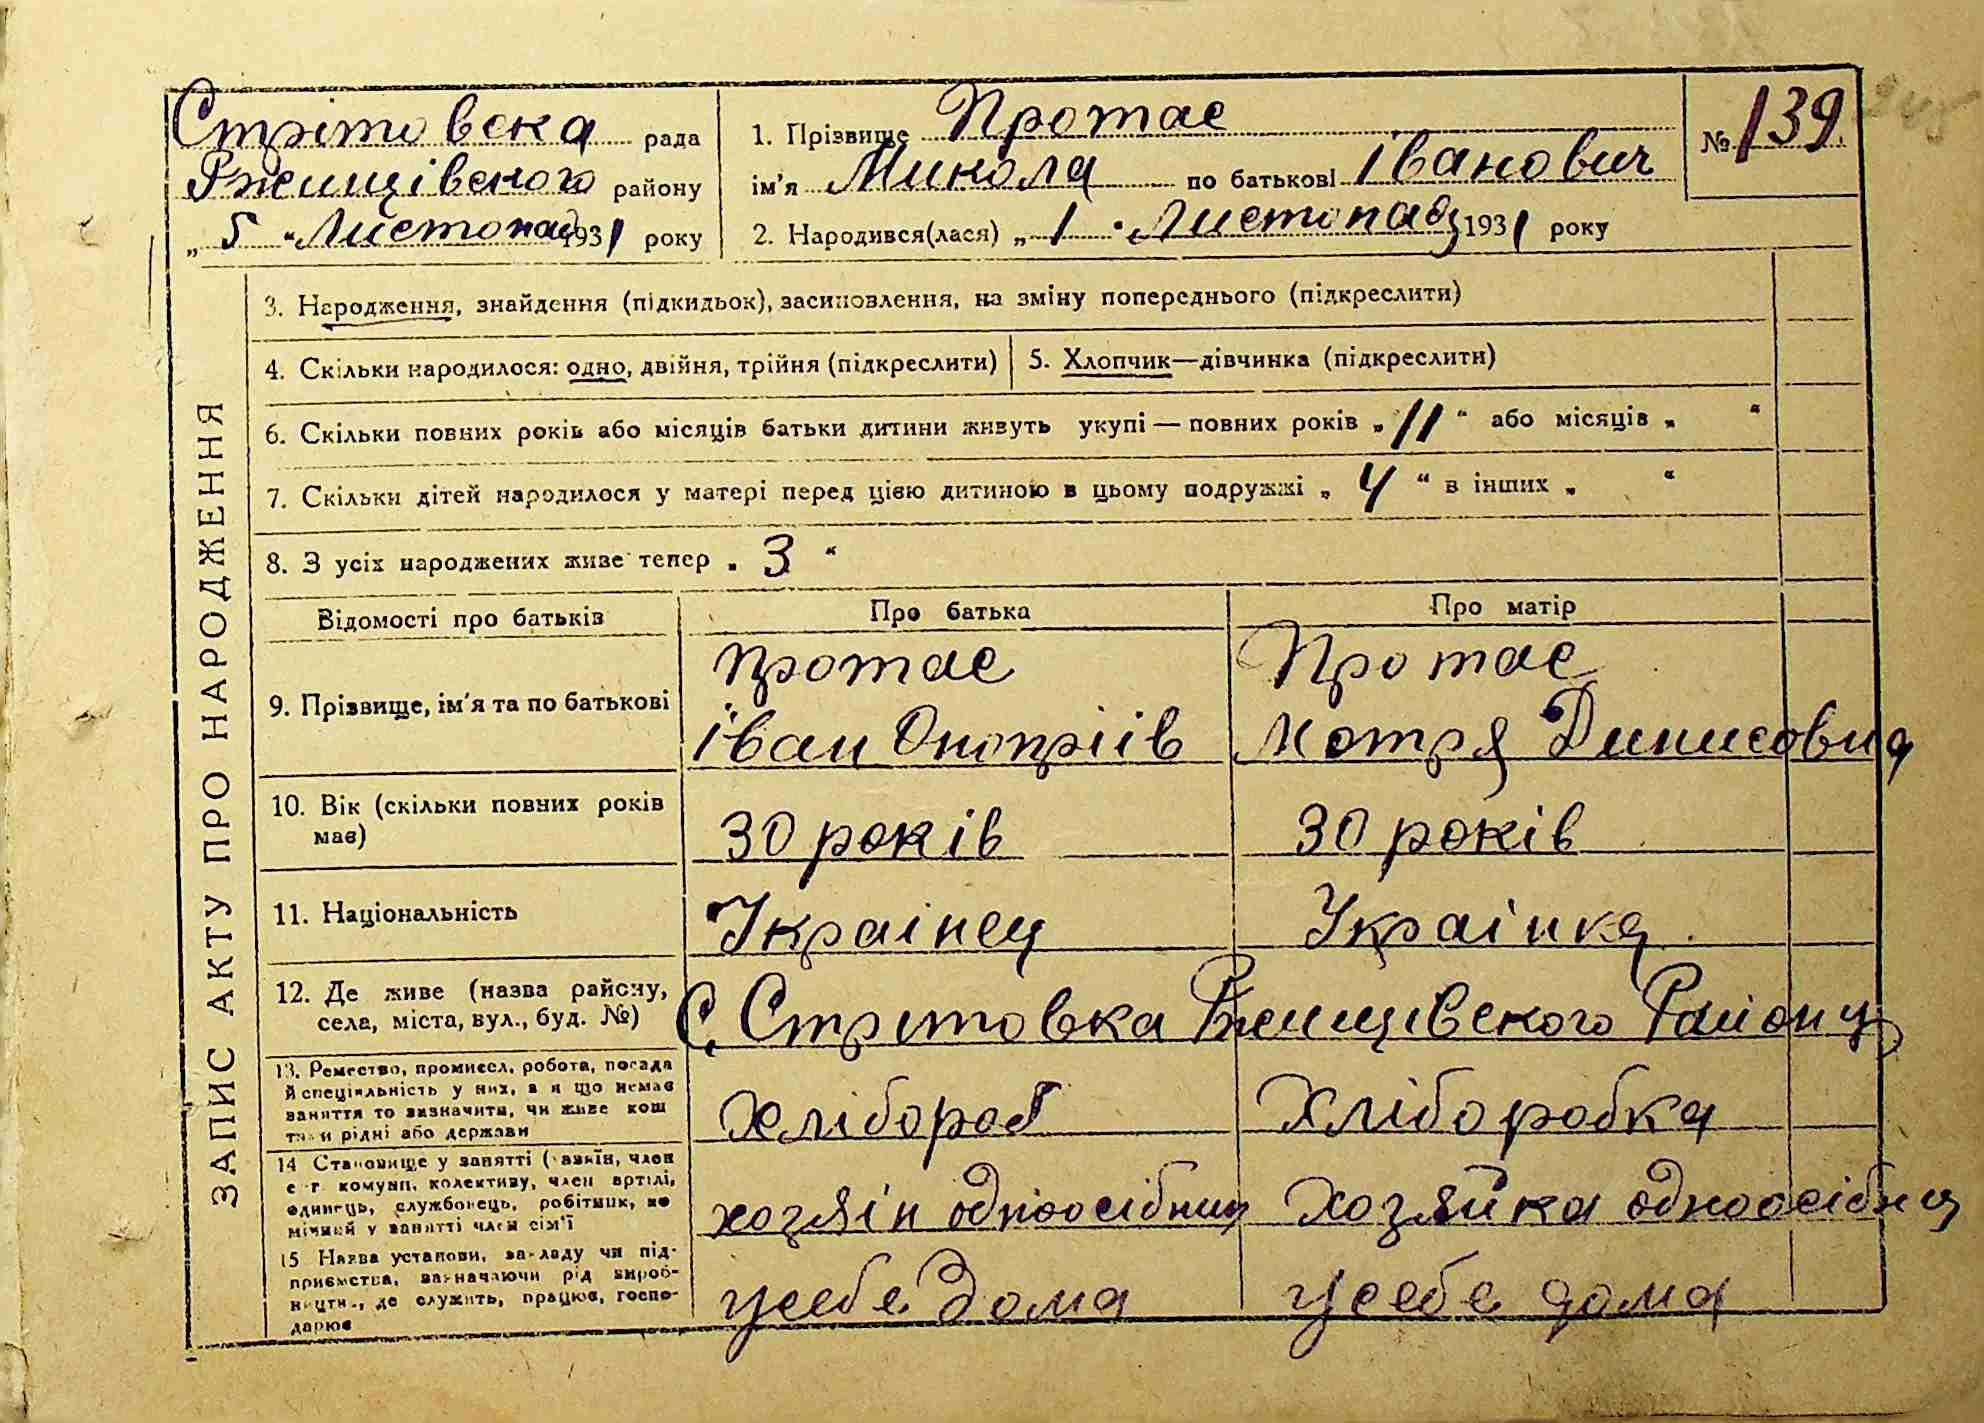 Стрітовска рада
Ржищівского району
„ 5 “ Листопад 1931 року
1. Прізвище Протас
ім'я Микола по батькові Іванович
2. Народився(лася) „ 1 “ Листопад 1931 року
№ 139
ЗАПИС АКТУ ПРО НАРОДЖЕННЯ
3. Народження, знайдення (підкидьок), засиновлення, на зміну попереднього (підкреслити)
4. Скільки народилося: одно, двійня, трійня (підкреслити)
5. Хлопчик—дівчинка (підкреслити)
6. Скільки повних років або місяців батьки дитини живуть укупі — повних років „ 11 “ або місяців „ “
7. Скільки дітей народилося у матері перед цією дитиною в цьому подружжі „ 4 “ в інших „ “
8. З усіх народжених живе тепер „ 3 “
Відомості про батьків
Про батька
Про матір
9. Прізвище, ім'я та по батькові
Протас
Іван Оноприів
Протас
Мотря Динисовна
10. Вік (скільки повних років
має)
30 років
30 років
11. Національність
Украінец
Украінка
12. Де живе (назва району,
села, міста, вул., буд. №)
С. Стритовка Ржищівского Району
13. Ремество, промисел, робота, посада
й спеціяльність у них, а я що немає
заняття то визначити, чи живе кош
тами рідні або держави
Хлібороб
Хліборобка
14 Становище у занятті (хазяїн, член
с.-г. комуни, колективу, член артілі,
одинець, службовець, робітник, по
мічний у занятті член сім'ї
хозяін одноосібниц
Хозяйка одноосібниц
15 Назва установи, закладу чи під-
приємства, зазначаючи рід вироб-
ництв., де служить, працює, госпо-
дарює
усебе дома
усебе дома